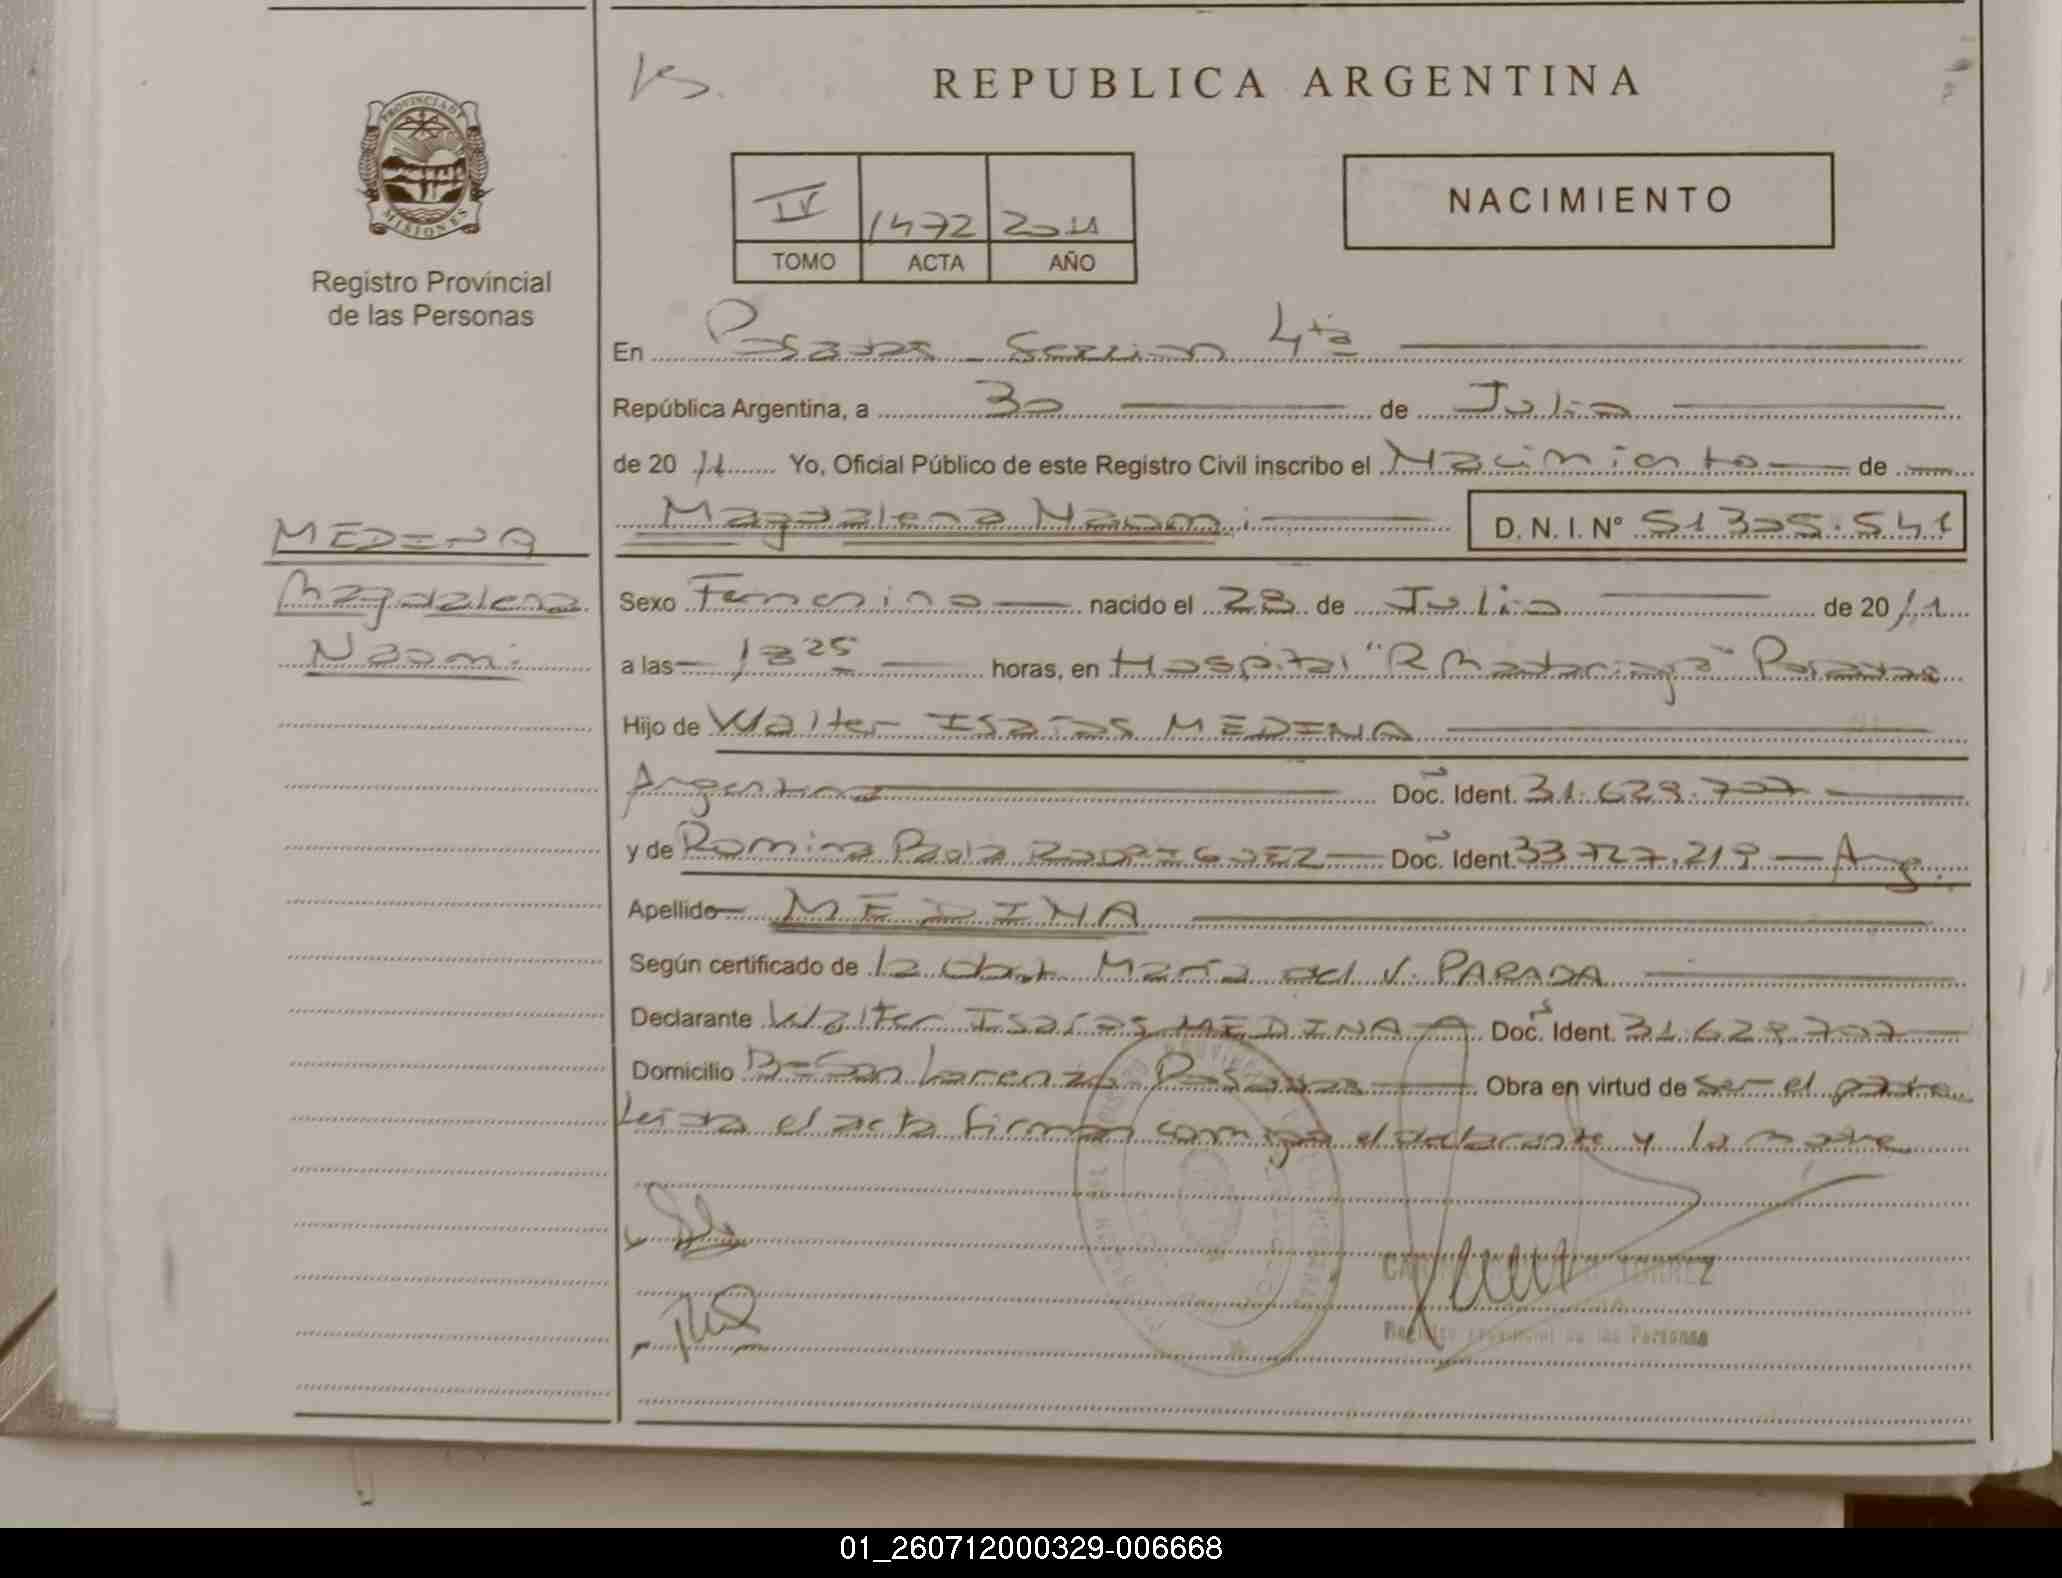 REPUBLICA ARGENTINA
PROVINCIA DE
MISIONES
Registro Provincial
de las Personas
IV 1472 2011
TOMO ACTA AÑO
NACIMIENTO
En Posadas - Seccion 4ta
República Argentina, a 30 de Julio
de 20 11 Yo, Oficial Público de este Registro Civil inscribo el Nacimiento de
Magdalena Naomi D. N. I. Nº 51305.541
MEDINA
Magdalena
Naomi
Sexo Femenino nacido el 28 de Julio de 20 11
a las 18 25 horas, en Hospital "R Madariaga" Posadas
Hijo de Walter Isaías MEDINA
Argentino Doc. Ident. 31.628.707
y de Romina Paola RODRIGUEZ Doc. Ident. 33 727.219 - Arg.
Apellido MEDINA
Según certificado de la Obst. María del V. PARADA
Declarante Walter Isaías MEDINA Doc. Ident. 31.628.707
Domicilio Bº San Lorenzo Posadas Obra en virtud de ser el padre
Leida el acta firman conmigo el declarante y la madre
TORREZ
Registro Provincial de las Personas
01_260712000329-006668